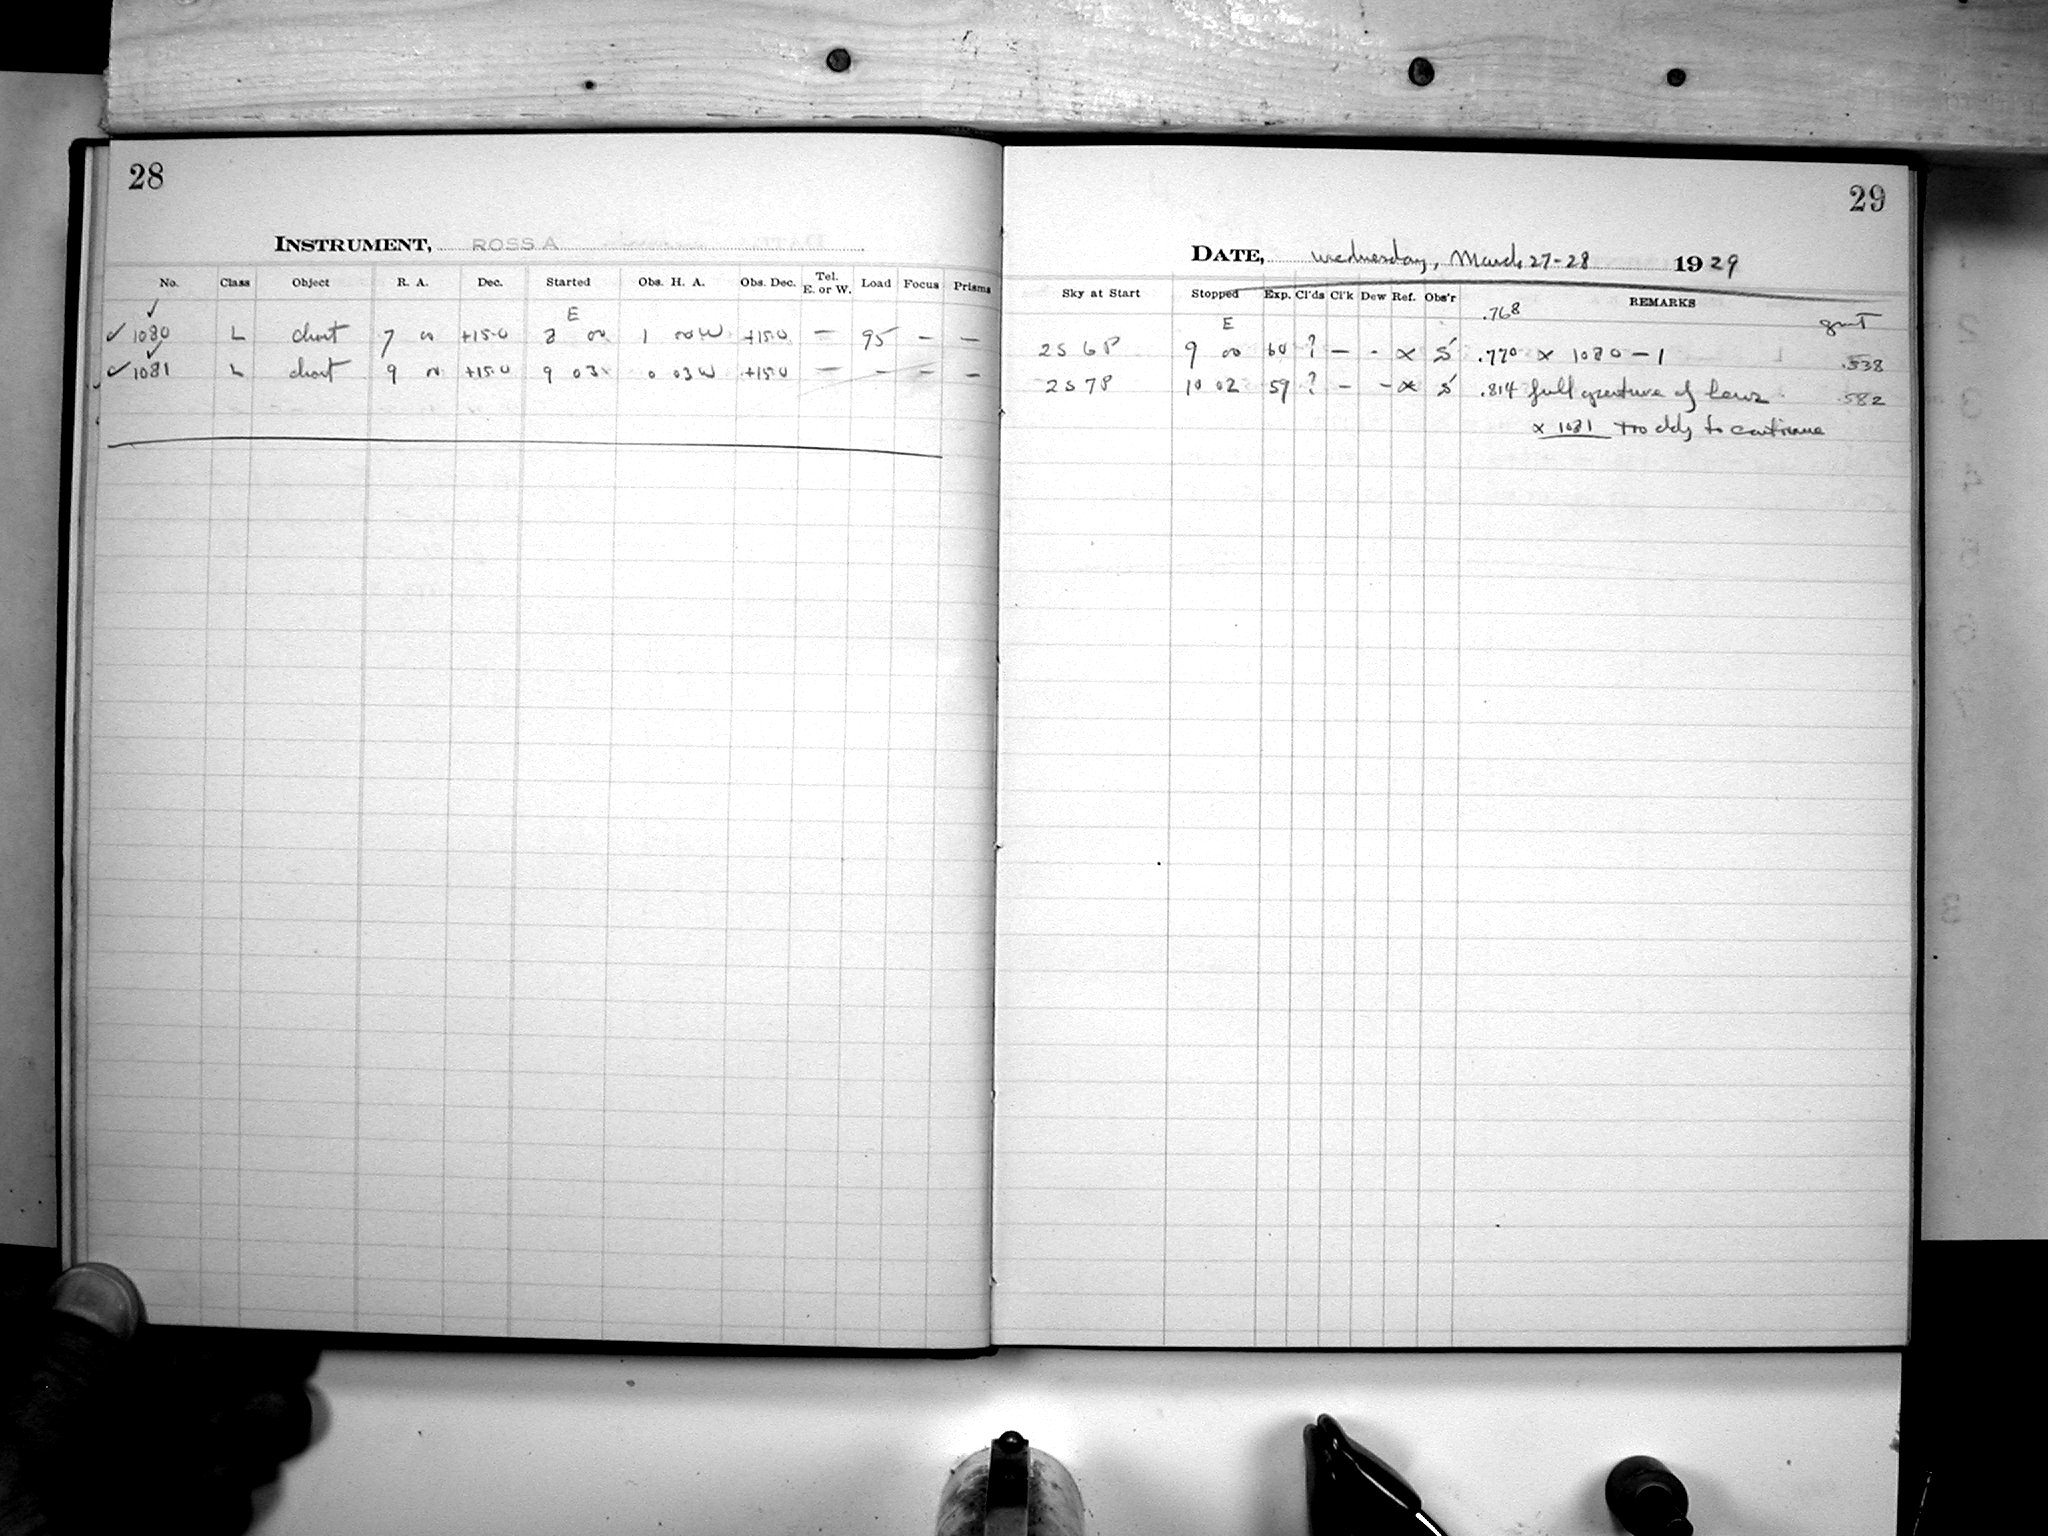 28
INSTRUMENT, ROSS A
No. Class Object R. A. Dec. Started Obs. H. A. Obs. Dec. Tel. E. or W. Load Focus Prisms
E
✓ 1080 L chart 7 00 +15.0 8 00 1 00 W +15.0 — 95 — —
✓ 1081 L chart 9 00 +15.0 9 03 0 03 W +15.0 — — — —
29
DATE, Wednesday, March 27-28 1929
Sky at Start Stopped Exp. Cl'ds Cl'k Dew Ref. Obs'r REMARKS
E .768 gmt
2S 6P 9 00 60 ? — - x S .770 x 1080 - 1 .538
2S 7P 10 02 59 ? — - x S .814 full aperture of lens .582
x 1081 too cldy to continue